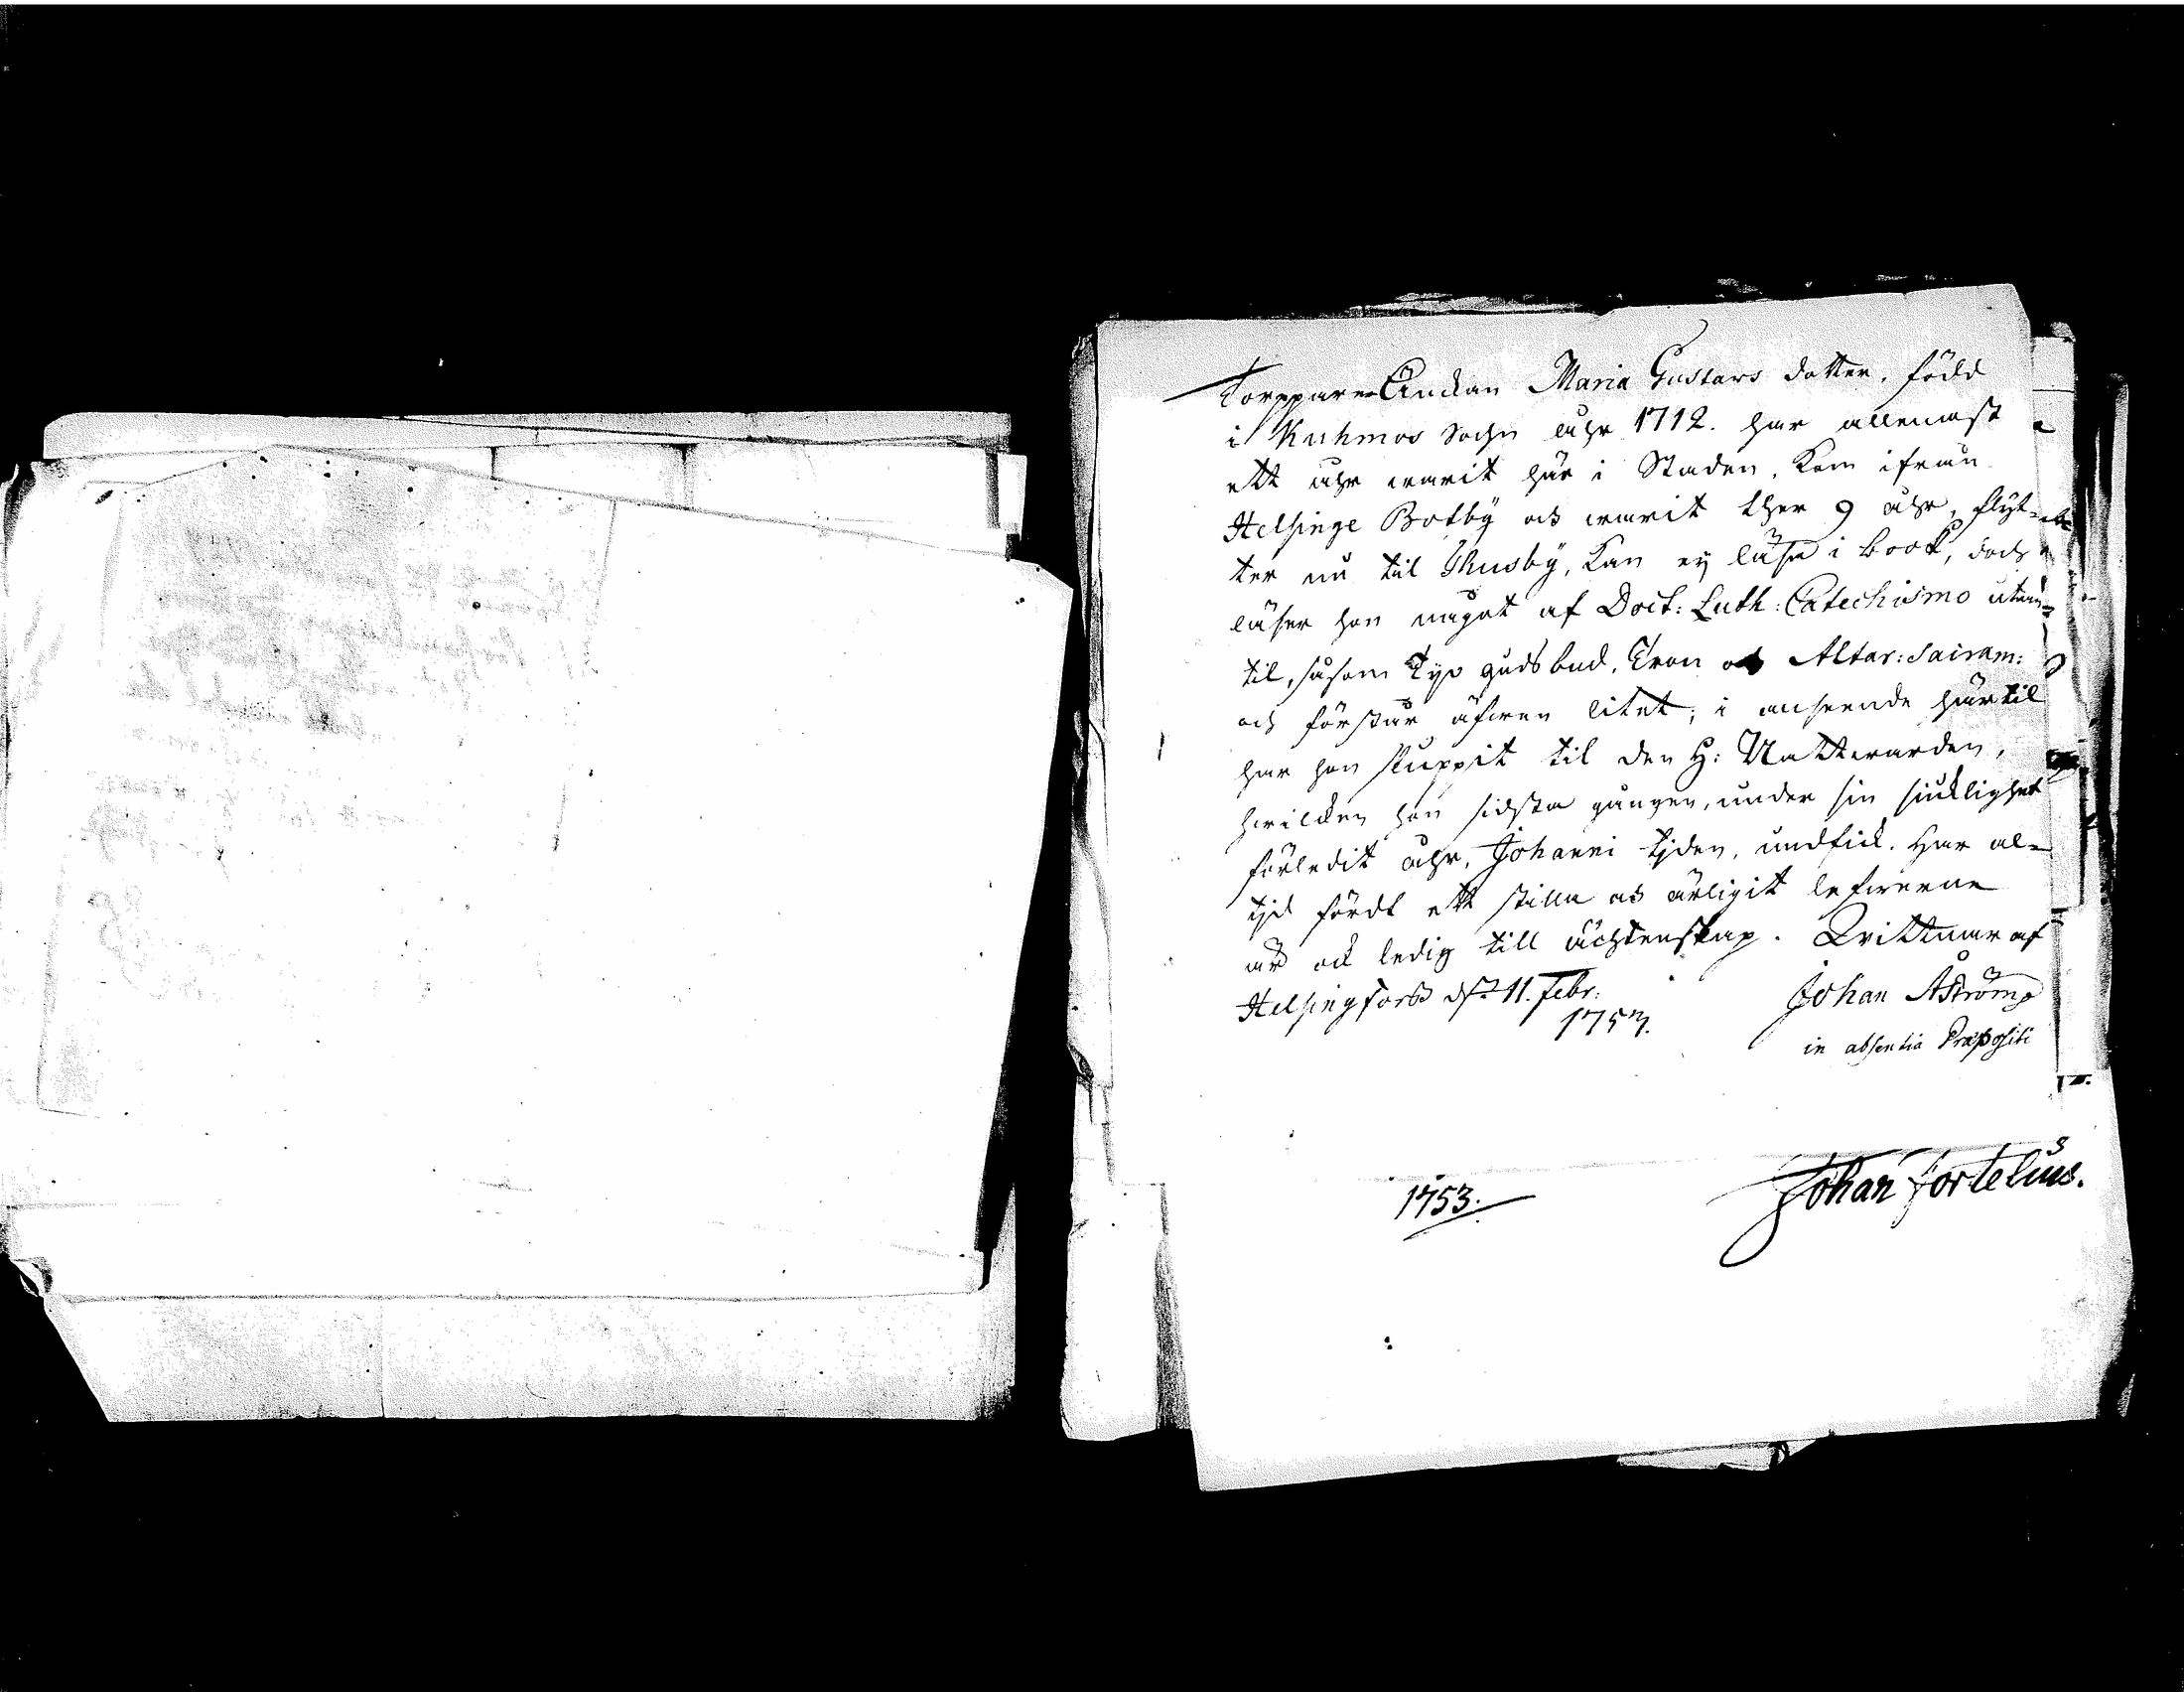 Torppare Änckan Maria Gustavs dotter, född
i Kuhmos Sochn åhr 1712. har allenast
ett åhr warit här i Staden, Kom ifrån
Helsinge Botby och warit ther 9 åhr, flyt-
ter nu til Thusby, Kan ej läsa i book, doch
läser hon något af Doct: Luth: Catechismo utan-
til, såsom Tyo gudsbud, Tron och Altar: Sacram:
och förstår äfwen litet; i anseende härtil
har hon sluppit til den H: Nattwarden,
hwilcken hon sidsta gången, under sin siuklighet
förledit åhr, Johanni tjden, undfick. Har al-
tjd fördt ett stilla och ärligit lefwerne
är ock ledig till ächtenskap. Wittnar af
Helsingfors d. 11. Febr:
1753. Johan Åström
in absentia Præpositi
1753. Johan Forteliius.